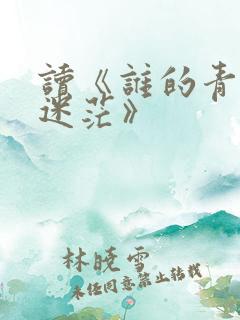 讀《誰的青
迷茫》
林曉雪
未經同意禁止轉載